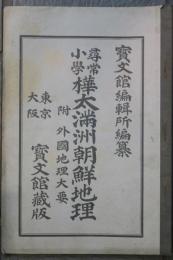 寶文館編輯所編纂
尋常小學樺太滿洲朝鮮地理
附外國地理大要
東京
大阪
寶文館藏版